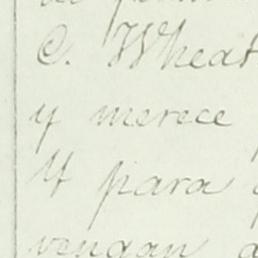 C. Wheat
y merece
Y para
vengan a